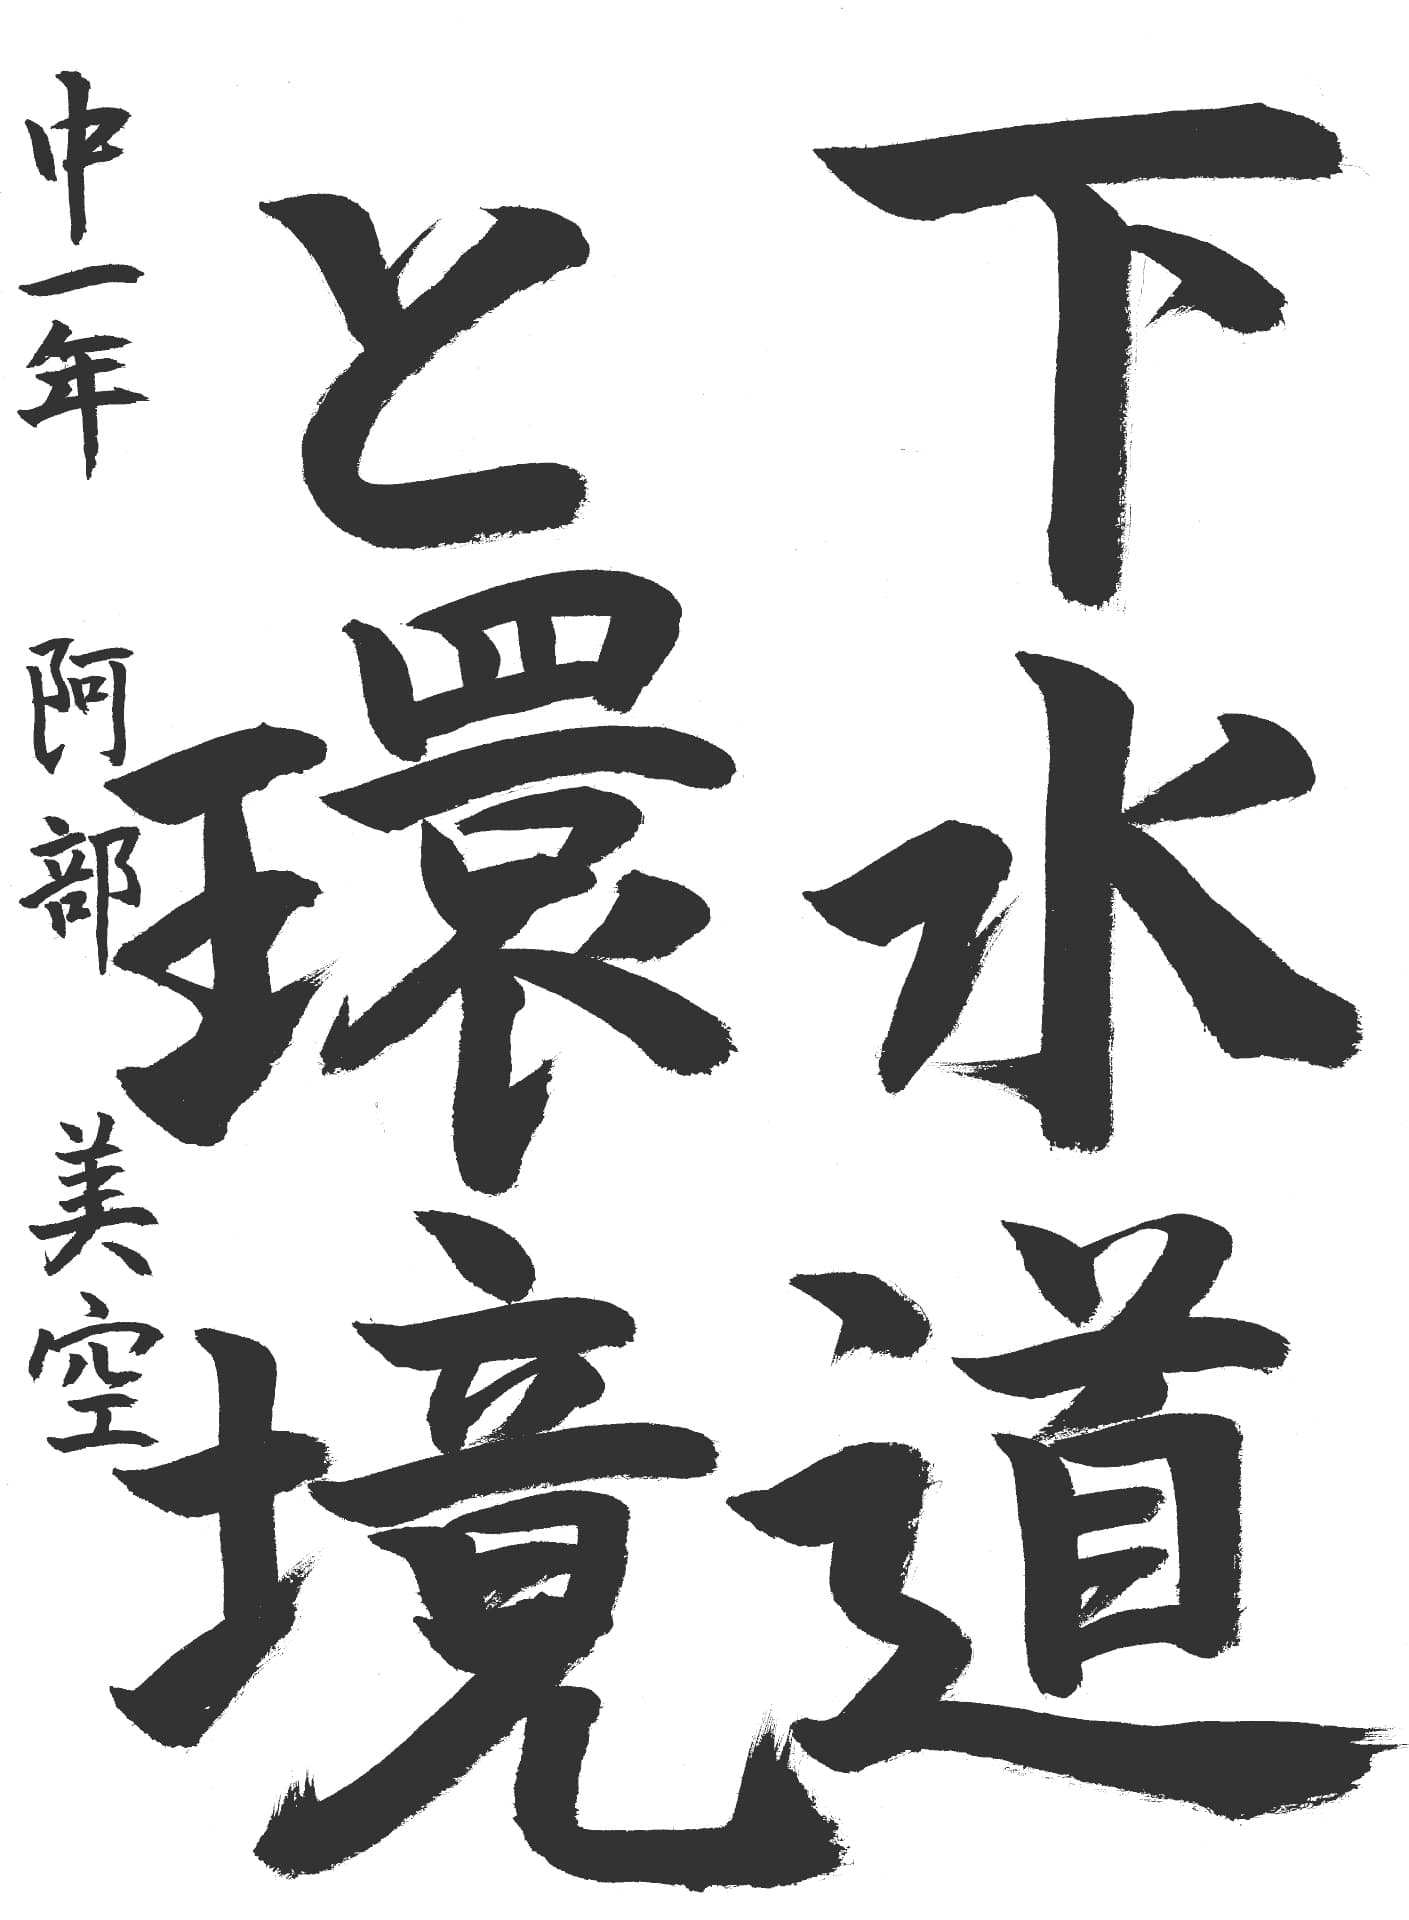 下水道
と環境
中一年 阿部 美空